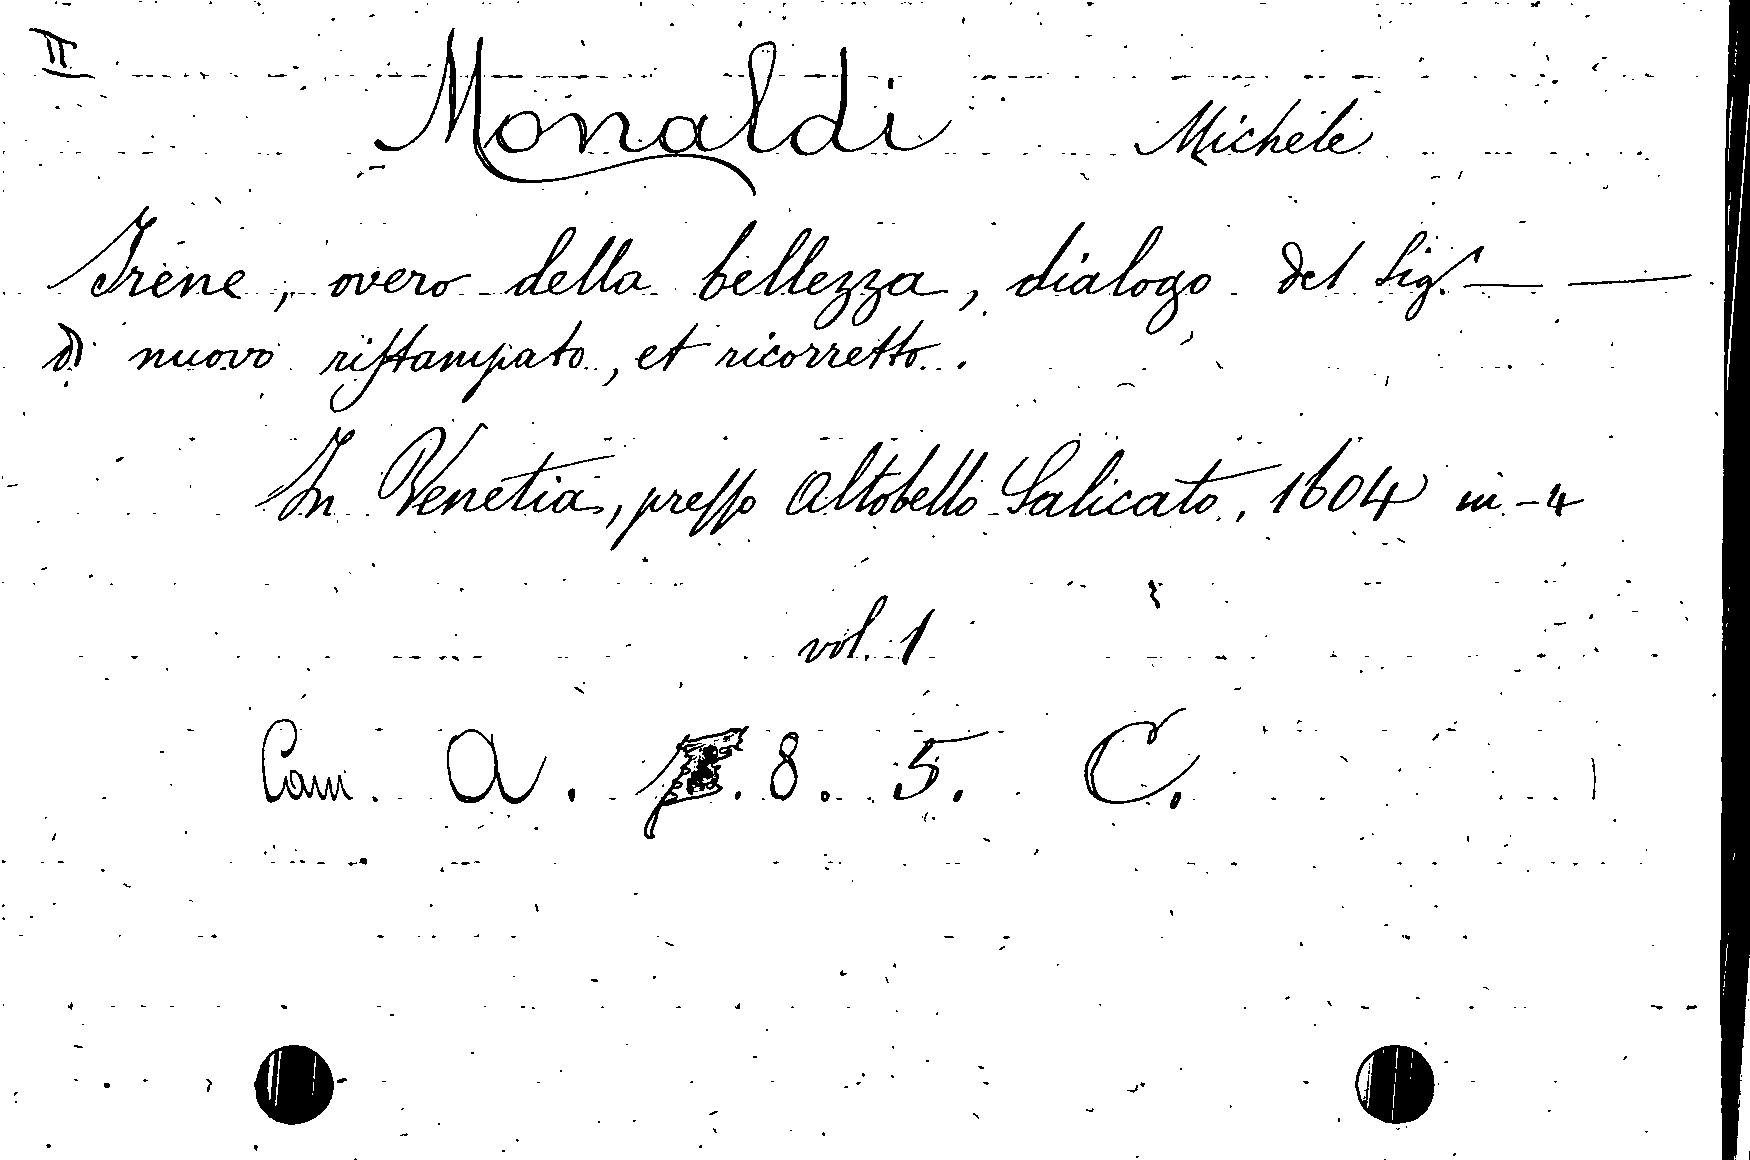 II
Monaldi Michele
Irene, overo della bellezza, dialogo del Sig.r — —
di nuovo riſtampato, et ricorretto.
In Venetia, preſſo Altobello Salicato, 1604 in-4
vol. 1
Cam. A. 8. 5. C.